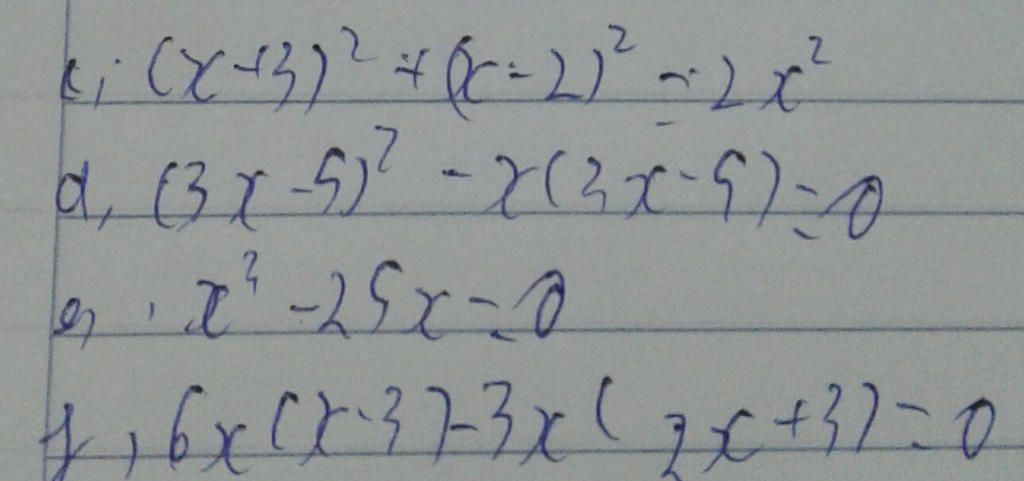 c, (x+3)² + (x-2)² = 2x²
d, (3x-5)² - x(3x-5) = 0
e, x³ - 25x = 0
f, 6x(x-3) - 3x(2x+3) = 0